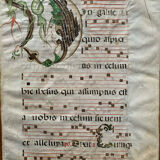 in galile
i quid aspici
tis in celum
hic iesus qui assumptus est
a vobis in celum sic veni
et alleluya